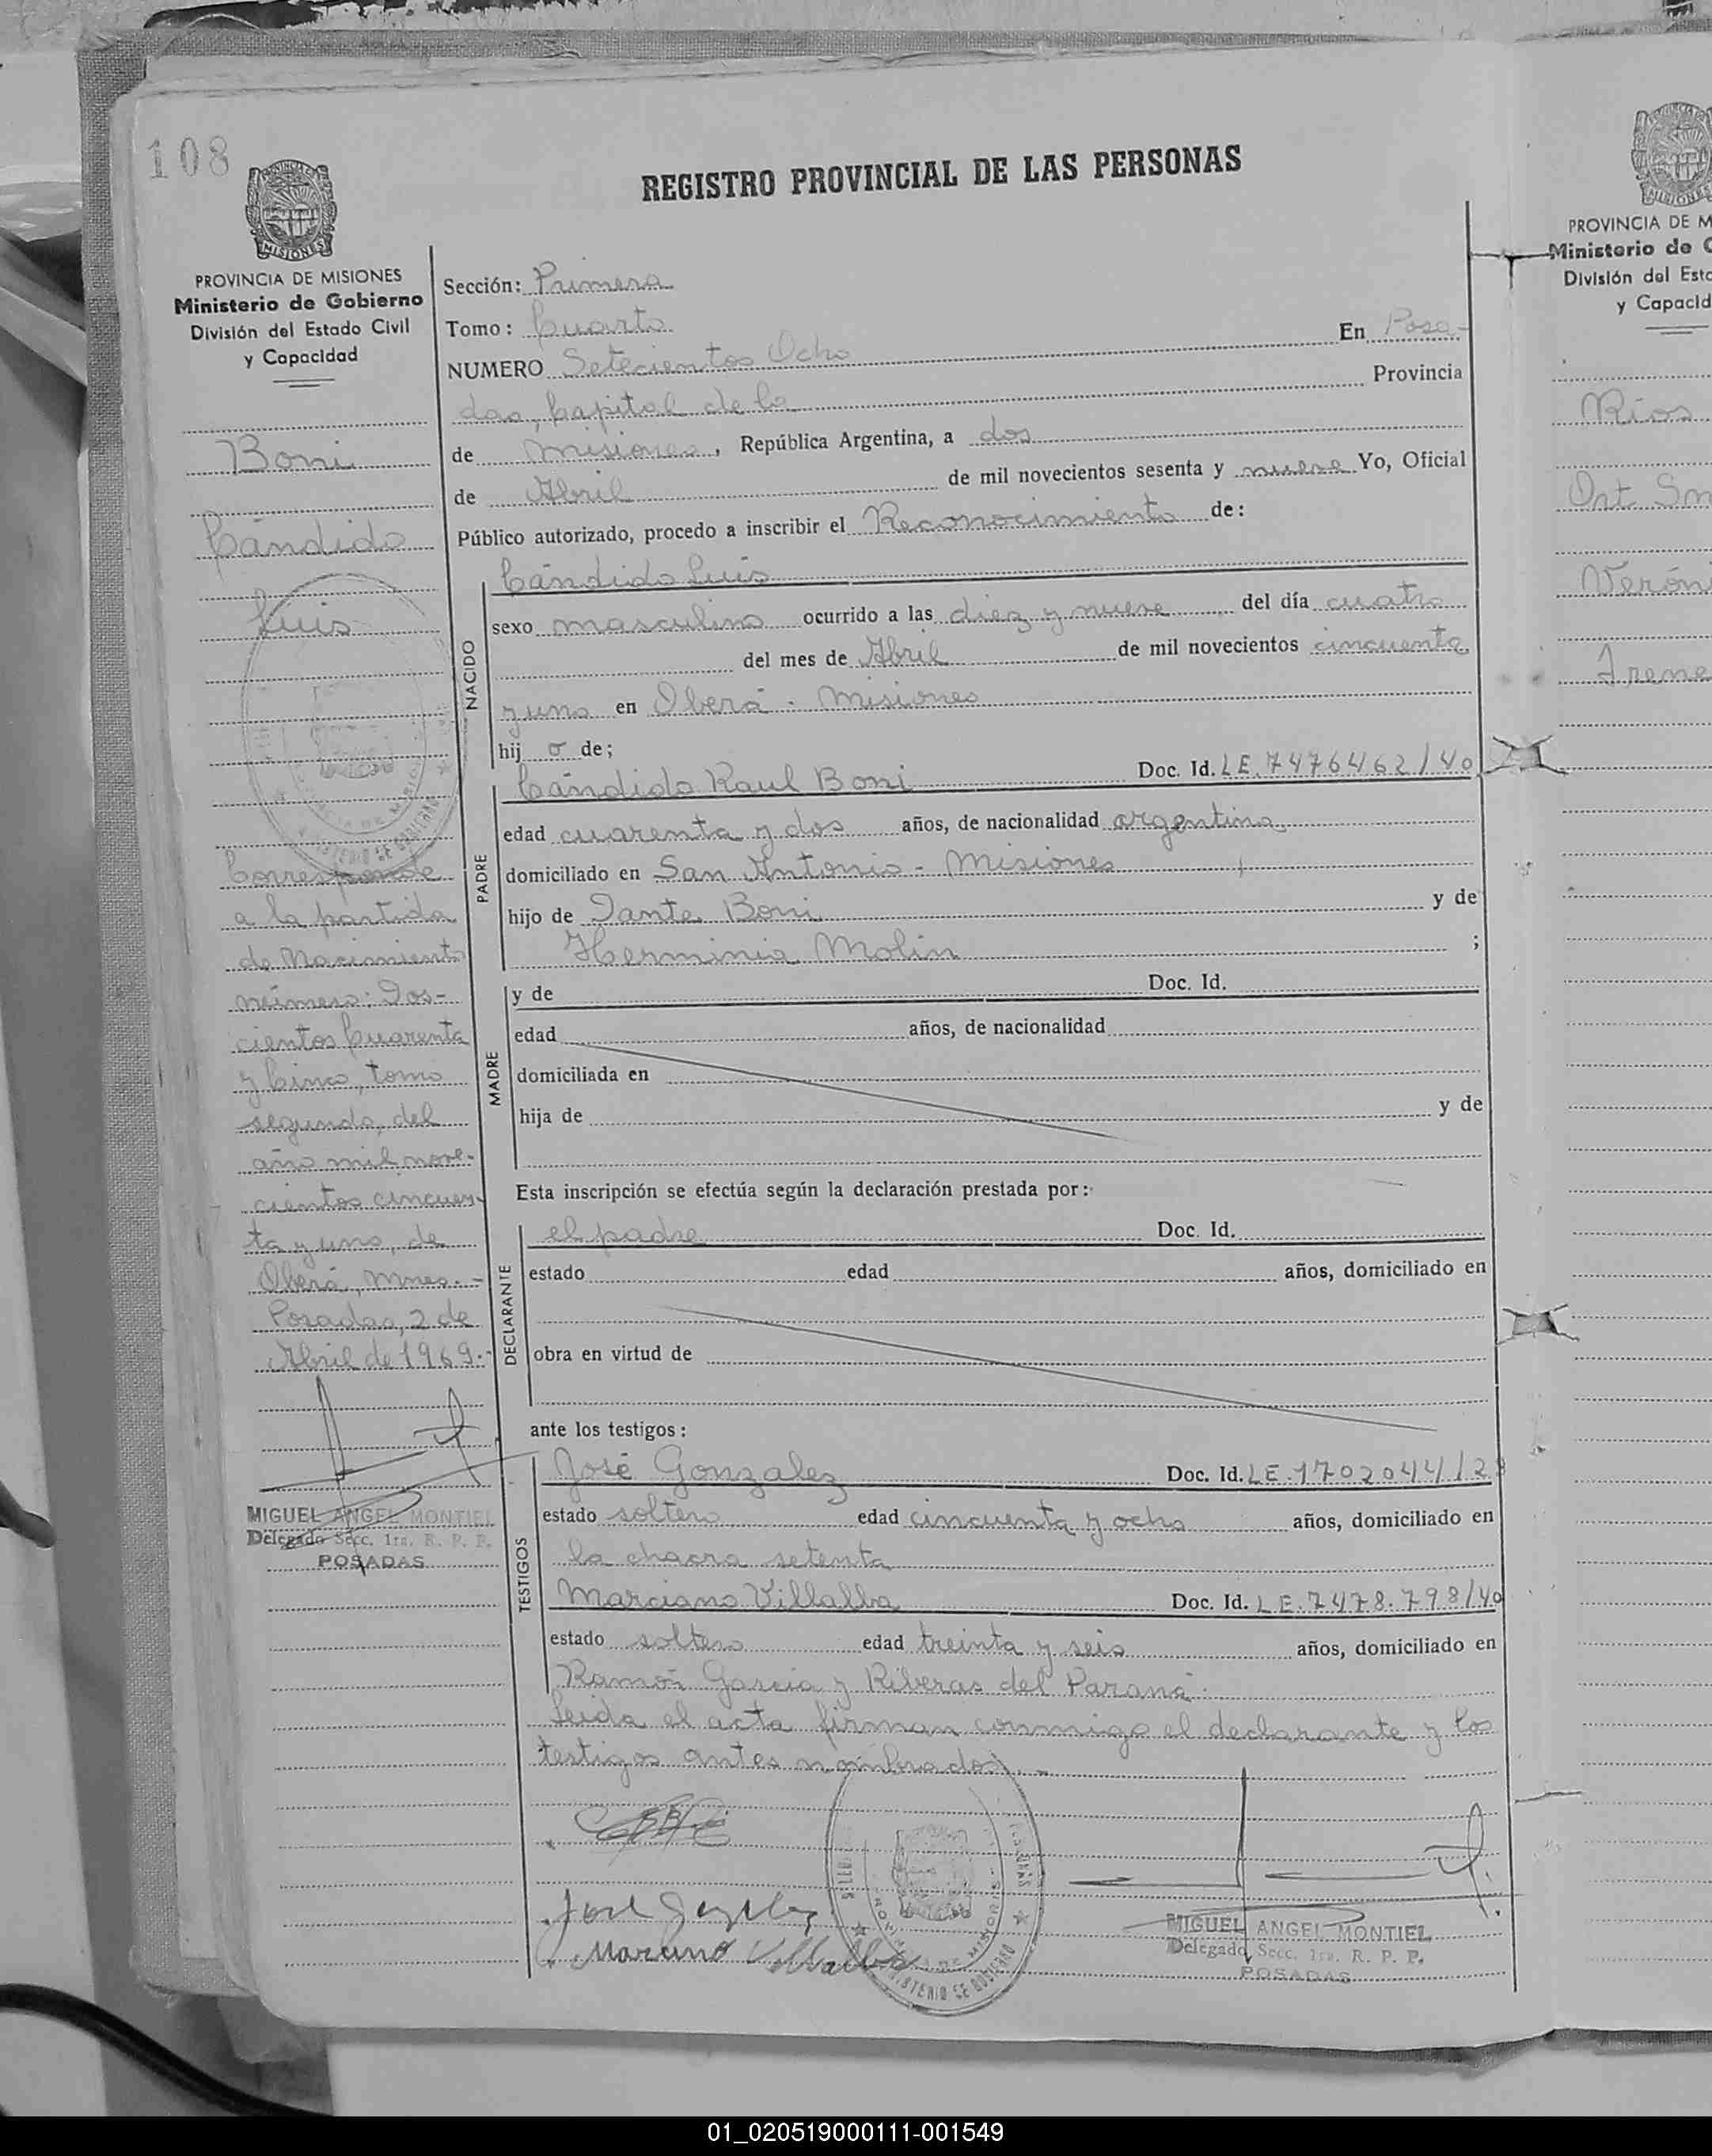 108
REGISTRO PROVINCIAL DE LAS PERSONAS
PROVINCIA DE MISIONES
Ministerio de Gobierno
División del Estado Civil
y Capacidad
Boni
Cándido
Luis
Corresponde
a la partida
de Nacimiento
número: Dos-
cientos Cuarenta
y Cinco, tomo
segundo, del
año mil nove-
cientos cincuen-
ta y uno, de
Oberá, Mnes. -
Posadas, 2 de
Abril de 1969.-
MIGUEL ANGEL MONTIEL
Delegado Secc. 1ra. R. P. P.
POSADAS
Sección: Primera
Tomo: Cuarto
NUMERO Setecientos Ocho En Posa-
das, Capital de la Provincia
de Misiones, República Argentina, a dos
de Abril de mil novecientos sesenta y nueve Yo, Oficial
Público autorizado, procedo a inscribir el Reconocimiento de:
NACIDO
Cándido Luis
sexo masculino ocurrido a las diez y nueve del día cuatro
del mes de Abril de mil novecientos cincuenta
y uno en Oberá - Misiones
hij o de;
PADRE
Cándido Raul Boni Doc. Id. LE.7476462/40
edad cuarenta y dos años, de nacionalidad argentina
domiciliado en San Antonio - Misiones
hijo de Dante Boni y de
Herminia Molin ;
MADRE
y de Doc. Id.
edad años, de nacionalidad
domiciliada en
hija de y de
Esta inscripción se efectúa según la declaración prestada por:
DECLARANTE
el padre Doc. Id.
estado edad años, domiciliado en
obra en virtud de
ante los testigos:
TESTIGOS
José Gonzalez Doc. Id. LE.1702044/2
estado soltero edad cincuenta y ocho años, domiciliado en
la chacra setenta
Marciano Villalba Doc. Id. LE.7478.798/40
estado soltero edad treinta y seis años, domiciliado en
Ramón García y Riberas del Paraná.
Leida el acta firman conmigo el declarante y los
testigos antes nombrados. -
MINISTERIO DE GOBIERNO
MIGUEL ANGEL MONTIEL
Delegado Secc. 1ra. R. P. P.
POSADAS
PROVINCIA DE M
Ministerio de G
División del Esta
y Capacid
Ríos
Ort. Sm
Veróni
Irene
01_020519000111-001549